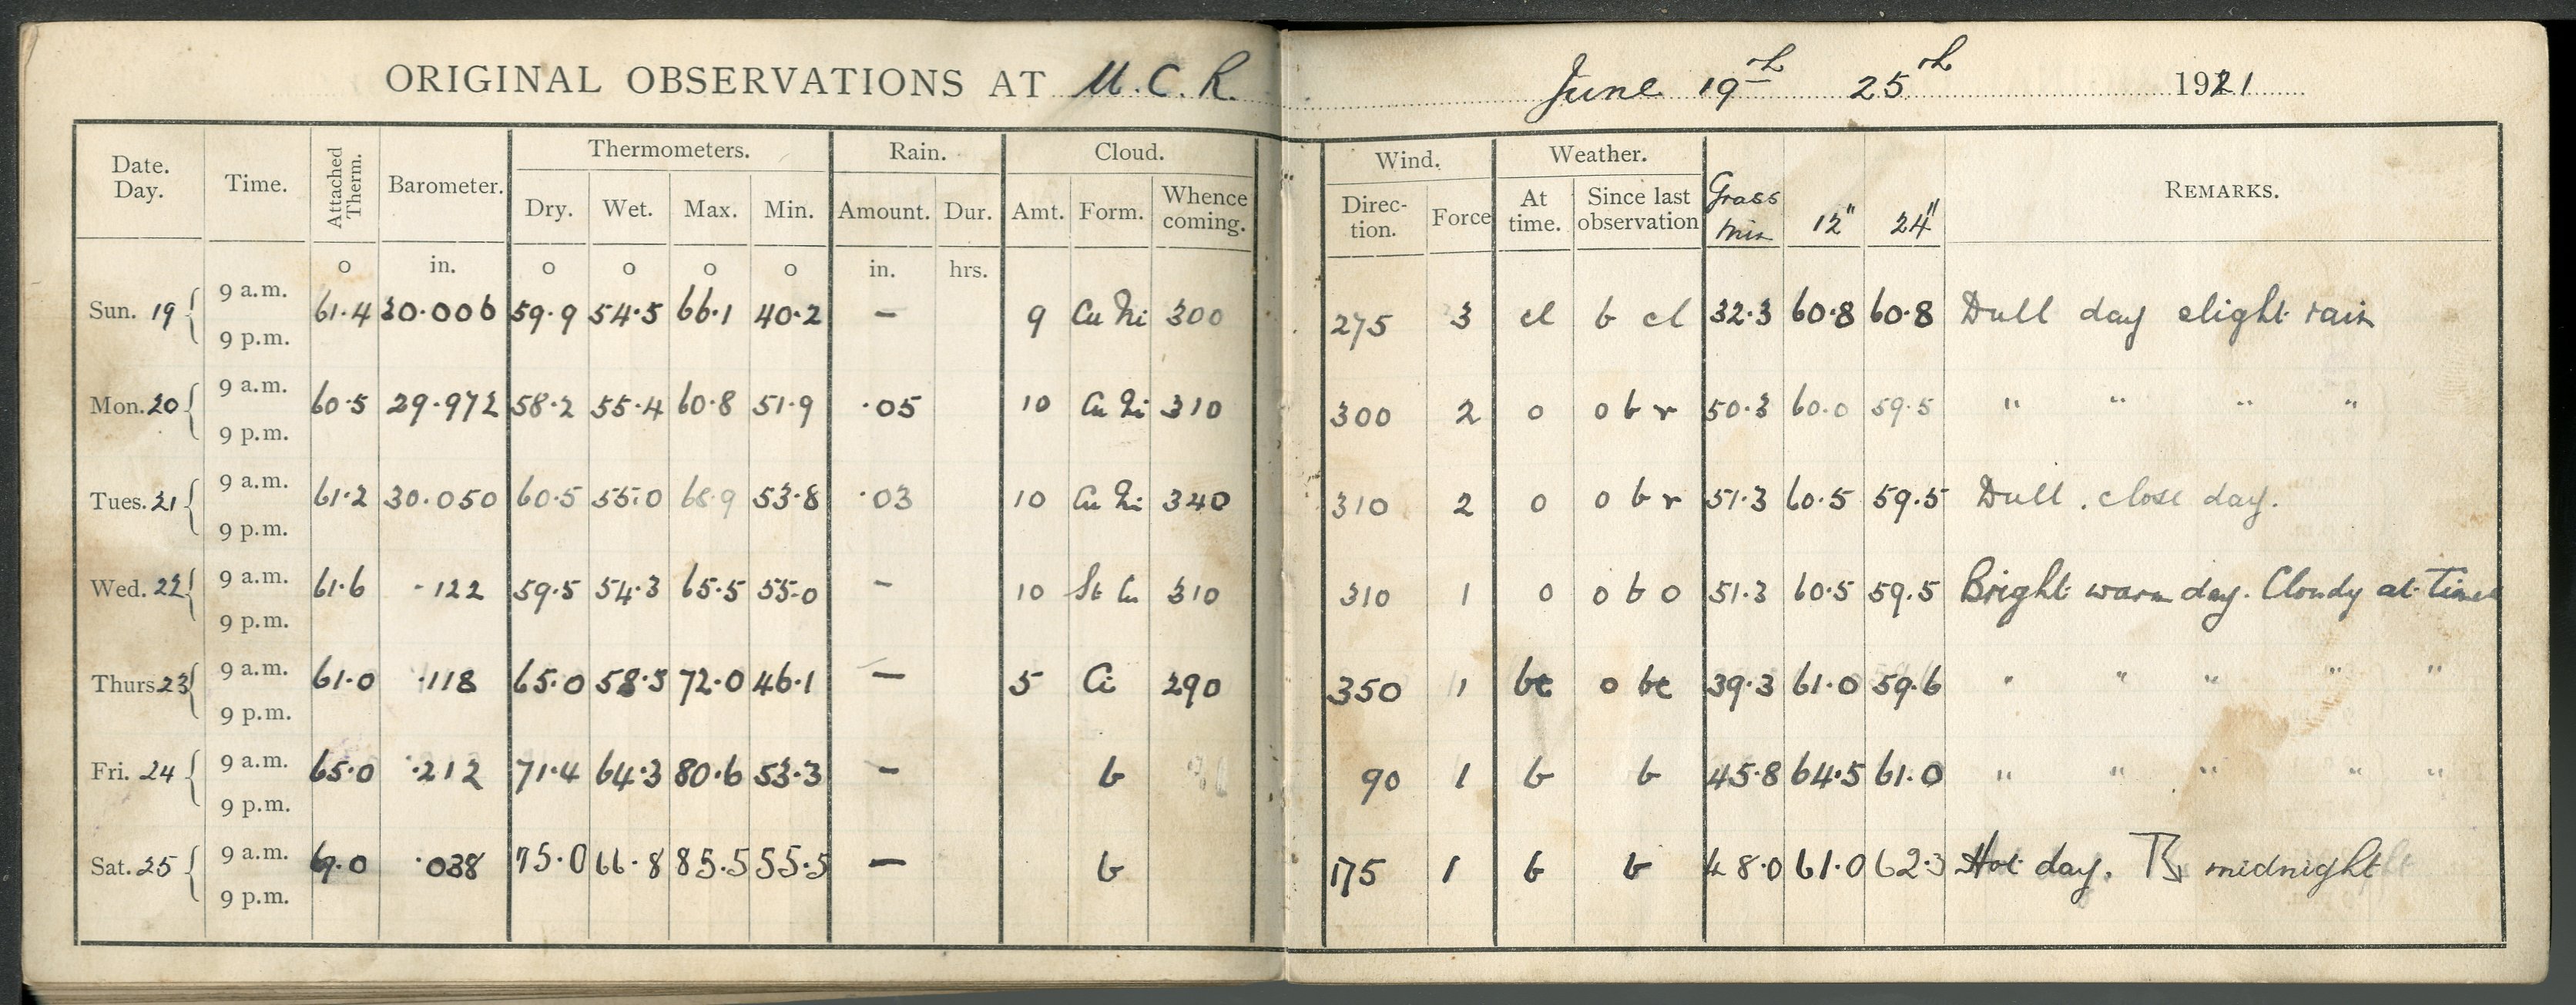 ORIGINAL OBSERVATIONS AT M.C.R. June 19th 25th 1921
Date. Day. Time. Attached Therm. Barometer. Thermometers. Rain. Cloud. Wind. Weather. Grass min 12" 24" REMARKS.
Dry. Wet. Max. Min. Amount. Dur. Amt. Form. Whence coming. Direc-tion. Force At time. Since last observation
o in. o o o o in. hrs.
Sun. 19 { 9 a.m. 61.4 30.006 59.9 54.5 66.1 40.2 — 9 Cu Ni 300 275 3 cl b cl 32.3 60.8 60.8 Dull day slight rain
9 p.m.
Mon. 20 { 9 a.m. 60.5 29.972 58.2 55.4 60.8 51.9 .05 10 Cu Ni 310 300 2 o o b r 50.3 60.0 59.5 " " " "
9 p.m.
Tues. 21 { 9 a.m. 61.2 30.050 60.5 55.0 68.9 53.8 .03 10 Cu Ni 340 310 2 o o b r 51.3 60.5 59.5 Dull. close day.
9 p.m.
Wed. 22 { 9 a.m. 61.6 .122 59.5 54.3 65.5 55.0 — 10 St Cu 310 310 1 o o b o 51.3 60.5 59.5 Bright warm day. Cloudy at times
9 p.m.
Thurs 23 { 9 a.m. 61.0 .118 65.0 58.3 72.0 46.1 — 5 Ci 290 350 1 bc o bc 39.3 61.0 59.6 " " " " "
9 p.m.
Fri. 24 { 9 a.m. 65.0 .212 71.4 64.3 80.6 53.3 — b 90 1 b b 45.8 64.5 61.0 " " " " "
9 p.m.
Sat. 25 { 9 a.m. .038 75.0 66.8 85.5 55.5 — b 175 1 b b 48.0 61.0 62.3 Hot day. midnight
9 p.m.